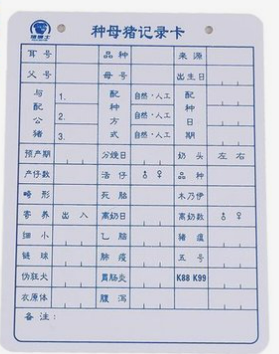 种母猪记录卡
耳号 品种 来源
父号 母号 出生日
与配公猪 1. 2. 3. 配种方式 自然·人工 自然·人工 自然·人工 配种日期
预产期 分娩日 奶头 左右
产仔数 活仔 ♂ ♀ 品种
畸形 死胎 木乃伊
寄养 出 入 离奶日 离奶数 ♂ ♀
细小 乙脑 猪瘟
链球 肺疫 五号
伪狂犬 胃肠炎 K88 K99
衣原体 腹泻
备注: